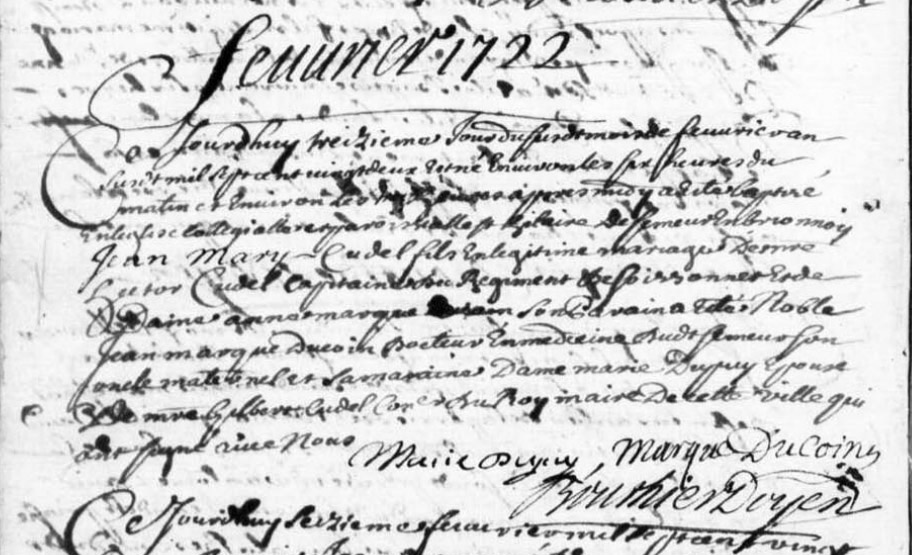 feuurier 1722
Jourdhuy treizieme Jour du susd mois de feuurier an
susd mil sept cent vingt deux Est né Enuiron les six heures du
matin et Enuiron les heures apres midy a été baptisé
En leglise collegialle et parroissialle st hilaire de Semeur En brionnois
Jean Mary Cudel fils En legitime mariage De mre
hector Cudel Capitaine au Regiment de Soissonnet Et de
Dame anne marque Ducoin son Parain a Eté Noble
Jean marque Ducoin Docteur En medecine Audt Semeur son
oncle maternel et sa maraine Dame marie Dupuy Epouse
De mre hilbert Cudel Coner du Roy maire De cette ville qui
ont signé auec Nous
Marie Dupuy, Marque DuCoin
Bouthier Doyen
Jourdhuy seizieme feuurier mil sept cent vingt